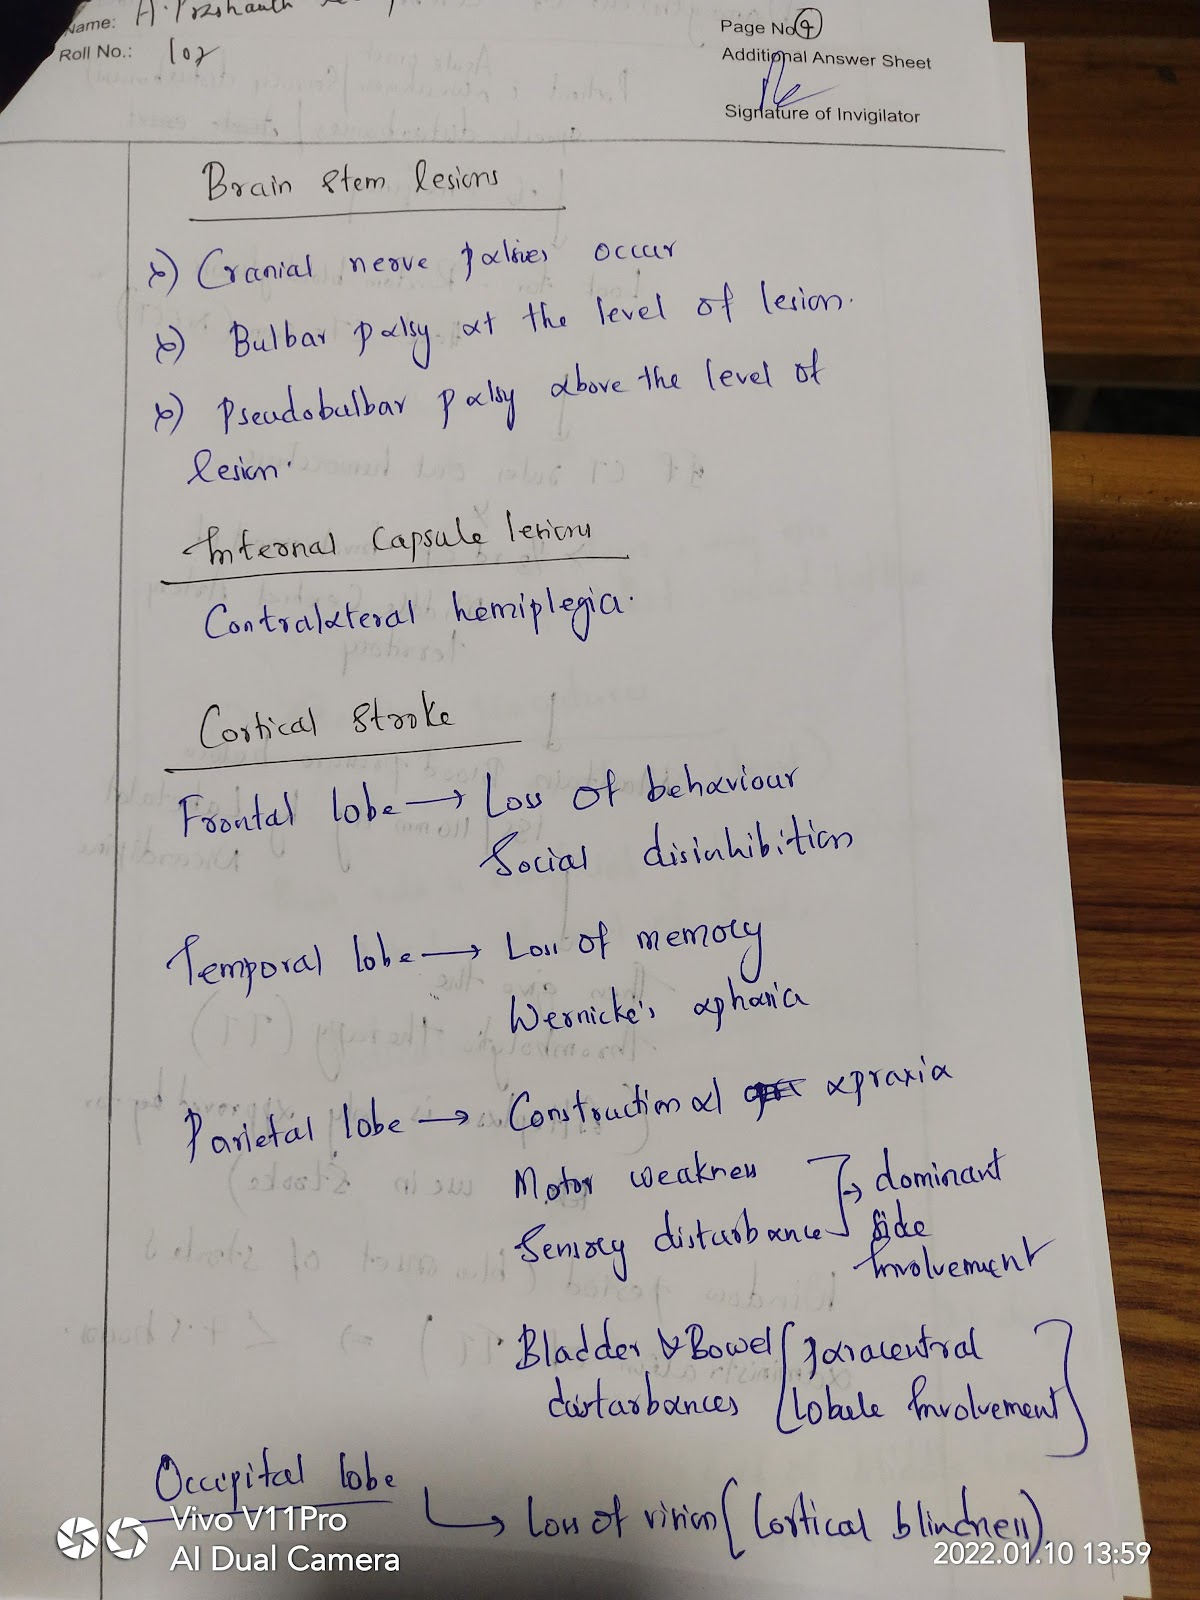 Name: A. Prashanth
Roll No.: 102
Page No 9
Additional Answer Sheet
Signature of Invigilator
Brain stem lesions
*) Cranial nerve palsies occur
*) Bulbar palsy at the level of lesion.
*) Pseudobulbar palsy above the level of
lesion.
Internal Capsule lesions
Contralateral hemiplegia.
Cortical stroke
Frontal lobe → Loss of behaviour
Social disinhibition
Temporal lobe → Loss of memory
Wernicke's aphasia
Parietal lobe → Constructional apraxia
Motor weakness
Sensory disturbance ] → dominant side Involvement
Bladder & Bowel
disturbances [paracentral lobule Involvement]
Occipital lobe
↳ Loss of vision (Cortical blindness).
Vivo V11Pro
AI Dual Camera
2022.01.10 13:59